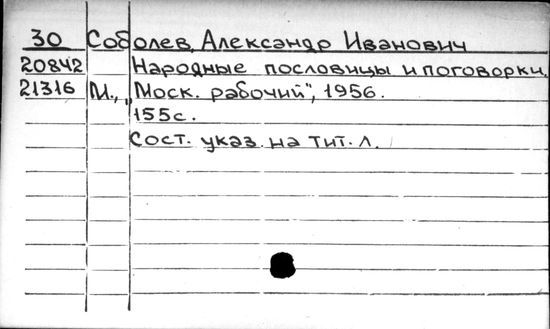 30 Соболев, Александр Иванович
20842 Народные пословицы и поговорки.
21316 М., „Моск. рабочий", 1956.
155с.
Сост. указ. на тит. л.